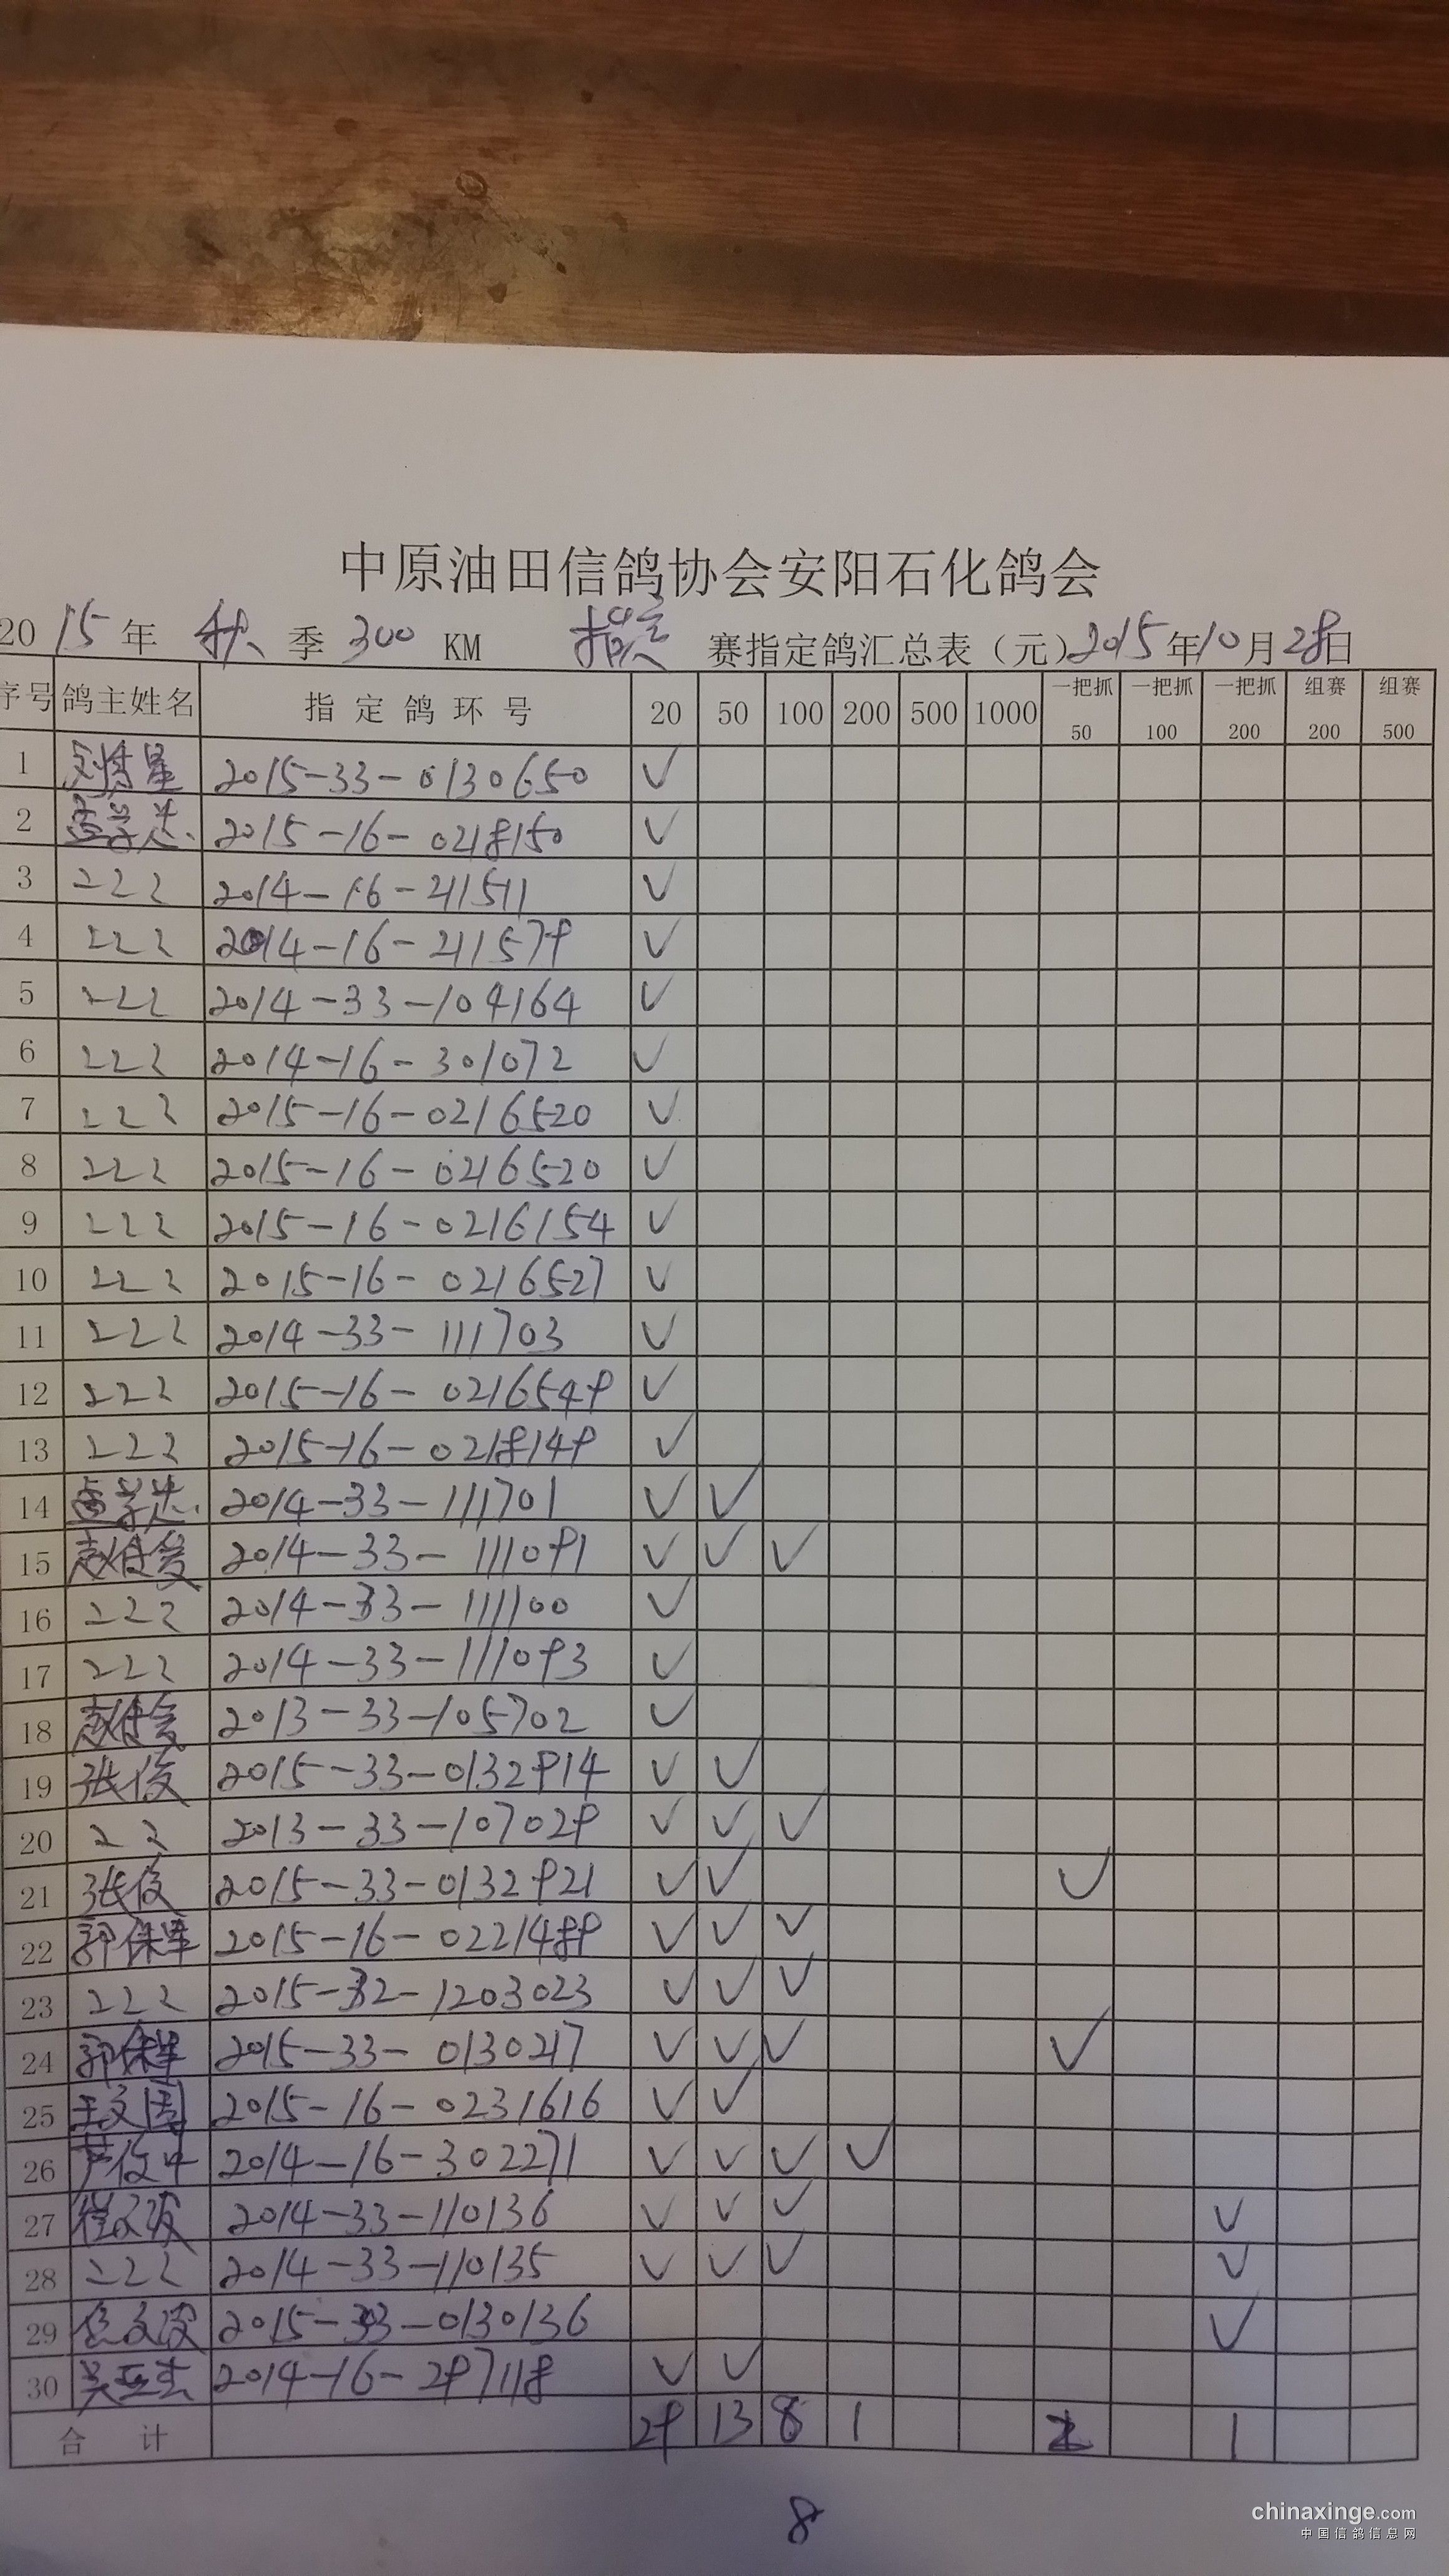 中原油田信鸽协会安阳石化鸽会
2015年 秋 季 300 KM 指定 赛指定鸽汇总表（元）2015年10月28日
序号 鸽主姓名 指定鸽环号 20 50 100 200 500 1000 一把抓50 一把抓100 一把抓200 组赛200 组赛500
1 2015-33-0130650 √
2 孟学忠 2015-16-0218150 √
3 〃 2014-16-211511 √
4 〃 2014-16-211579 √
5 〃 2014-33-104164 √
6 〃 2014-16-301072 √
7 〃 2015-16-0216520 √
8 〃 2015-16-0216520 √
9 〃 2015-16-0216154 √
10 〃 2015-16-0216527 √
11 〃 2014-33-111703 √
12 〃 2015-16-0216549 √
13 〃 2015-16-0218149 √
14 孟学忠 2014-33-111701 √ √
15 2014-33-111091 √ √ √
16 〃 2014-33-111100 √
17 〃 2014-33-111093 √
18 2013-33-105702 √
19 张俊 2015-33-0132914 √ √
20 〃 2013-33-107029 √ √ √
21 张俊 2015-33-0132921 √ √ √
22 郭保军 2015-16-0221489 √ √ √
23 〃 2015-32-1203023 √ √ √
24 郭保军 2015-33-0130217 √ √ √ √
25 王文国 2015-16-0231616 √ √
26 芦俊中 2014-16-302271 √ √ √ √
27 2014-33-110136 √ √ √ √
28 〃 2014-33-110135 √ √ √ √
29 2015-33-0130136 √
30 吴亚杰 2014-16-297118 √ √
合计 29 13 8 1 2 1
8
chinaxinge.com
中国信鸽信息网